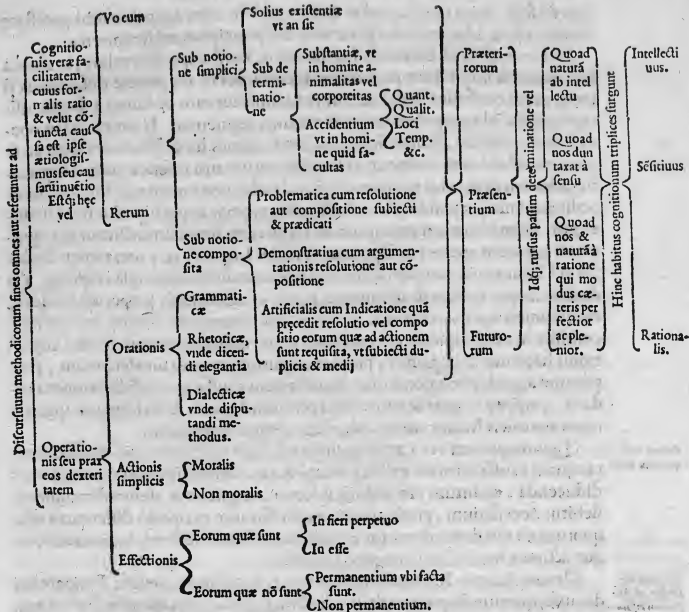 Discursuum methodicorum fines omnes aut referuntur ad
Cognitio-
nis veræ fa-
cilitatem,
cuius for-
malis ratio
& velut cō-
iuncta cau
sa est ipse
ætiologis-
mus seu cau
sarū inuētio
Estq; hęc
vel
Vocum
Rerum
Sub notio
ne simplici
Solius existentiæ
vt an sit
Sub de
termi-
natio-
ne
Substantiæ, vt
in homine a-
nimalitas vel
corporeitas
Accidentium
vt in homi-
ne quid fa-
cultas
Quant.
Qualit.
Loci
Temp.
&c.
Sub notio-
ne compo-
sita
Problematica cum resolutione
aut compositione subiecti
& prædicati
Demonstratiua cum argumen-
tationis resolutione aut cō-
positione
Artificialis cum Indicatione quā
pręcedit resolutio vel compo
sitio eorum quæ ad actionem
sunt requisita, vt subiecti du-
plicis & medij
Præteri-
torum
Præsen-
tium
Futuro-
rum
Idq; rursus passim determinatione vel
Quoad
naturā
ab intel
lectu
Quoad
nos dun
taxat à
sensu
Quoad
nos &
naturā à
ratione
qui mo
dus cæ-
teris per
fectior
ac ple-
nior.
Hinc habitus cognitionum triplices surgunt
Intellecti
uus.
Sēsitiuus
Rationa-
lis.
Operatio-
nis seu prax
eos dexteri
tatem
Orationis
Grammati-
cæ
Rhetoricæ,
vnde dicen-
di elegantia
Dialecticæ
vnde dispu-
tandi me-
thodus.
Actionis
simplicis
Moralis
Non moralis
Effectionis
Eorum quæ sunt
In fieri perpetuo
In esse
Eorum quæ nō sunt
Permanentium vbi facta
sunt.
Non permanentium.